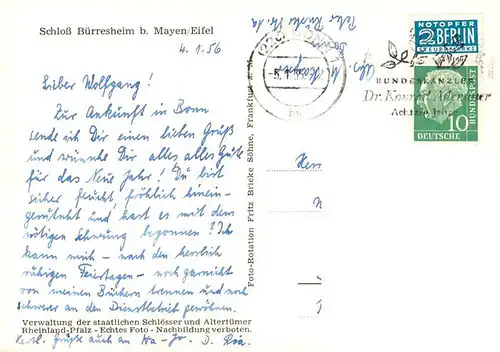 Schloß Bürresheim b. Mayen/Eifel
4.1.56
Lieber Wolfgang!
Zur Ankunft in Bonn
sende ich Dir einen lieben Gruß
und wünsche Dir alles alles Gute
für das Neue Jahr! Du bist
sicher feucht, fröhlich hinein-
gerutscht und hast es mit dem
nötigen Schwung begonnen! Ich
kann mich - nach den herrlich
ruhigen Feiertagen - noch garnicht
von meinen Büchern trennen und noch
schwerer an den Dienstbetrieb gewöhnen.
Verwaltung der staatlichen Schlösser und Altertümer
Rheinland-Pfalz - Echtes Foto - Nachbildung verboten.
Herzl. Grüße auch an Ha-Jo. D. Ria.
Foto-Rotation Fritz Bricke Söhne, Frankfurt a. M.
Abs.
NOTOPFER
2 BERLIN
STEUERMARKE
BUNDESKANZLER
Dr. Konrad Adenauer
DEUTSCHE
BUNDESPOST
10
Herr